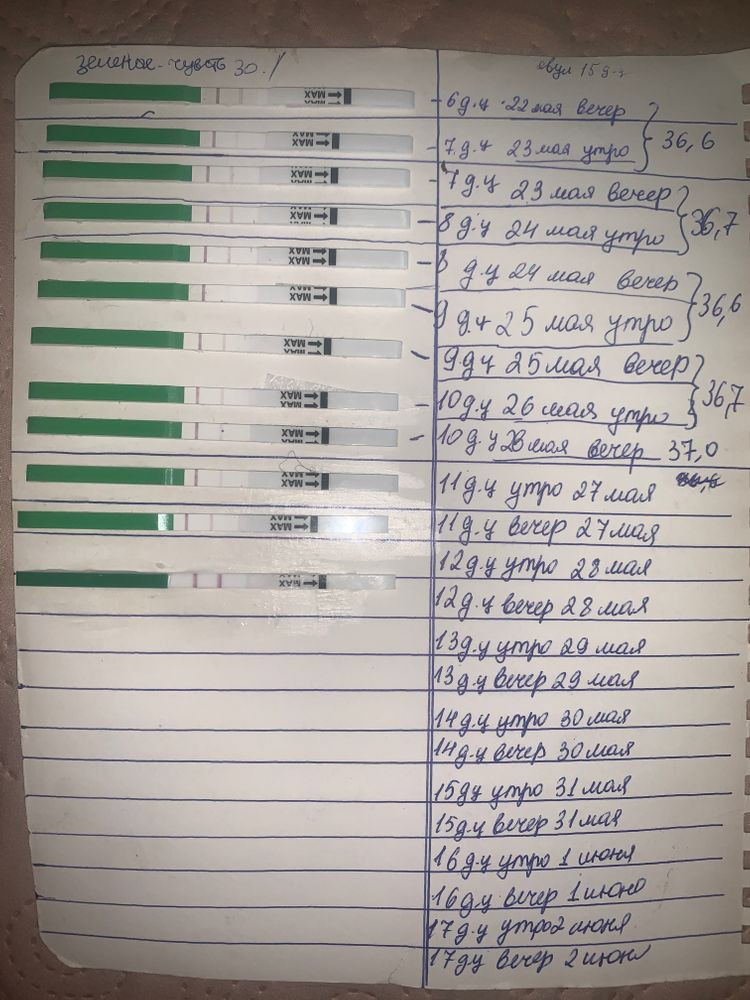 зеленое-чувст 30./
овул 15 д.ц
MAX
- 6 д.ц 22 мая вечер
MAX
- 7.д.ц 23 мая утро
36,6
MAX
- 7 д.ц 23 мая вечер
MAX
- 8 д.ц 24 мая утро
36,7
MAX
- 8 д.ц 24 мая вечер
MAX
- 9 д.ц 25 мая утро
36,6
MAX
- 9 д.ц 25 мая вечер
MAX
- 10 д.ц 26 мая утро
36,7
MAX
- 10 д.ц 26 мая вечер 37,0
MAX
11 д.ц утро 27 мая
MAX
11 д.ц вечер 27 мая
MAX
12 д.ц утро 28 мая
12 д.ц вечер 28 мая
13 д.ц утро 29 мая
13 д.ц вечер 29 мая
14 д.ц утро 30 мая
14 д.ц вечер 30 мая
15 дц утро 31 мая
15 д.ц вечер 31 мая
16 д.ц утро 1 июня
16 д.ц вечер 1 июня
17 д.ц утро 2 июня
17 дц вечер 2 июн